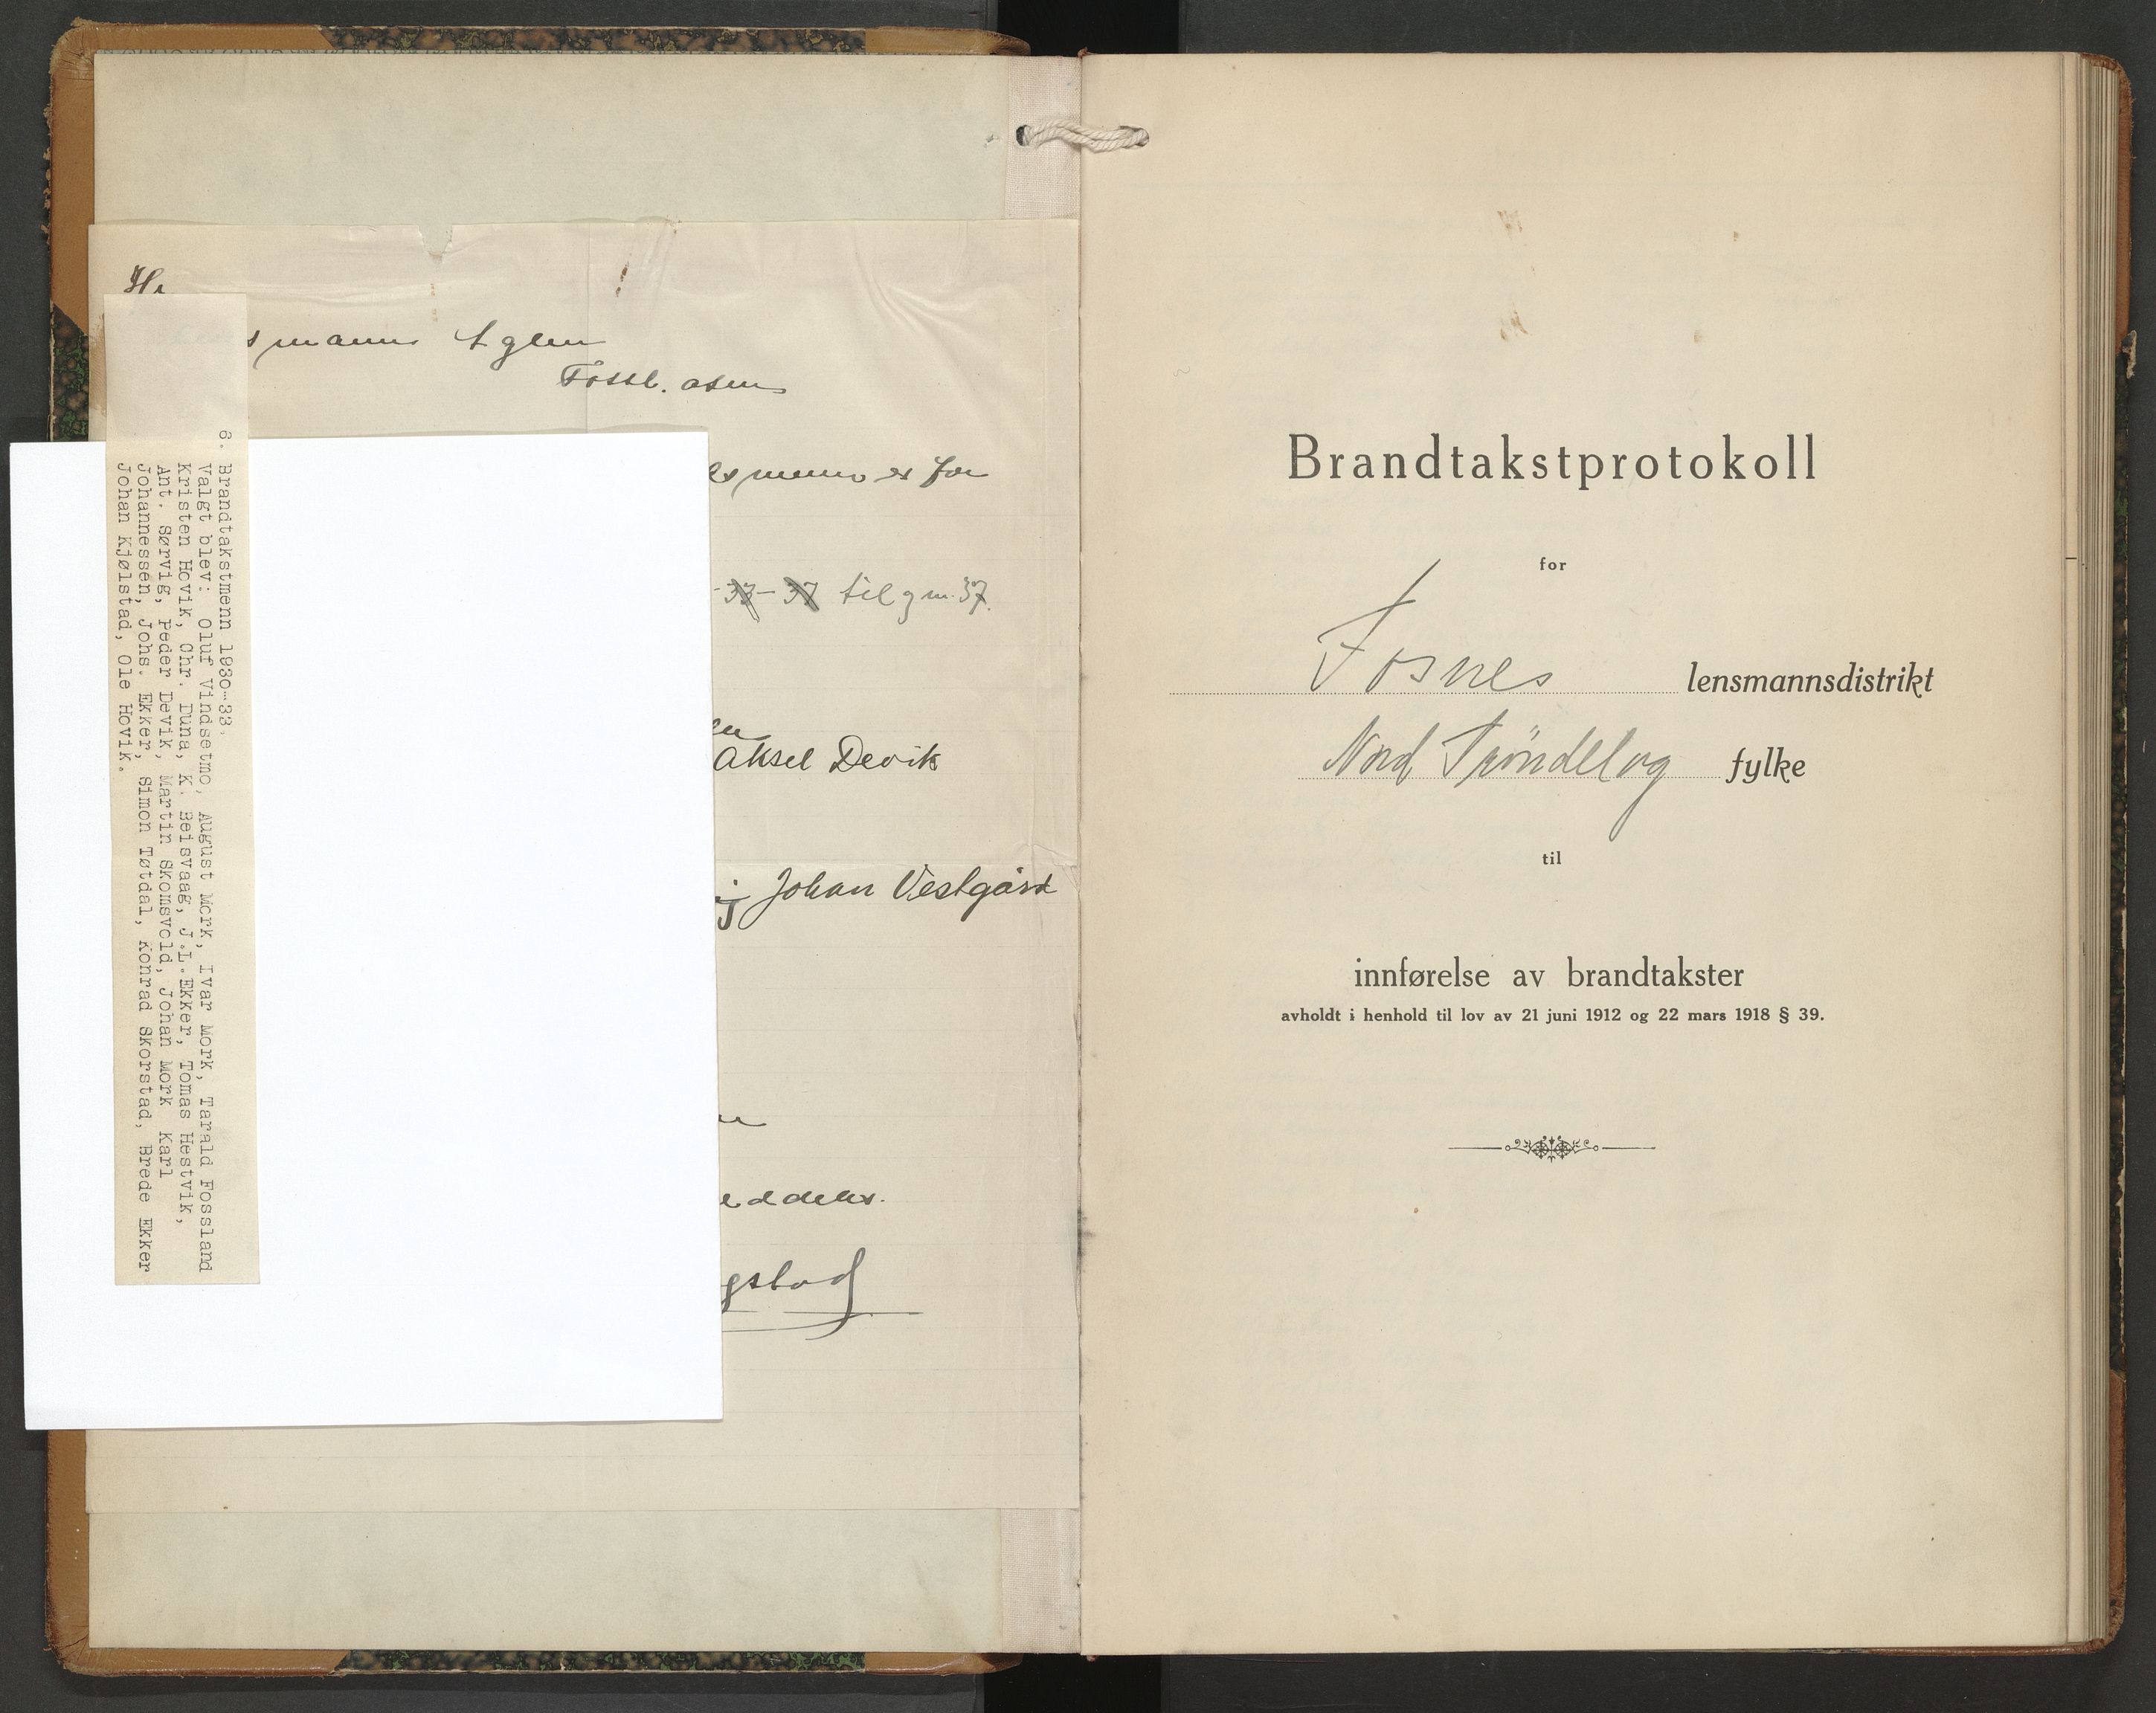 He
smann Aglen
Fossl. osen
6. Brandtakstmenn 1930-33.
Valgt blev: Oluf Vindsetmo, August Mork, Ivar Mork, Tarald Fossland
Kristen Hovik, Chr. Duna, K. Beisvaag, J.L.Ekker, Tomas Hestvik,
Ant. Sørvig, Peder Devik, Martin Skomsvold, Johan Mork Karl
Johannessen, Johs. Ekker, Simon Tøtdal, Konrad Skorstad, Brede Ekker
Johan Kjølstad, Ole Hovik.
menn er for
-33-37 til gm. 37.
en
Aksel Devik
Johan Vestgård
eddeles.
gstad
Brandtakstprotokoll
for
Fosnes lensmannsdistrikt
Nord Trøndelag fylke
til
innførelse av brandtakster
avholdt i henhold til lov av 21 juni 1912 og 22 mars 1918 § 39.